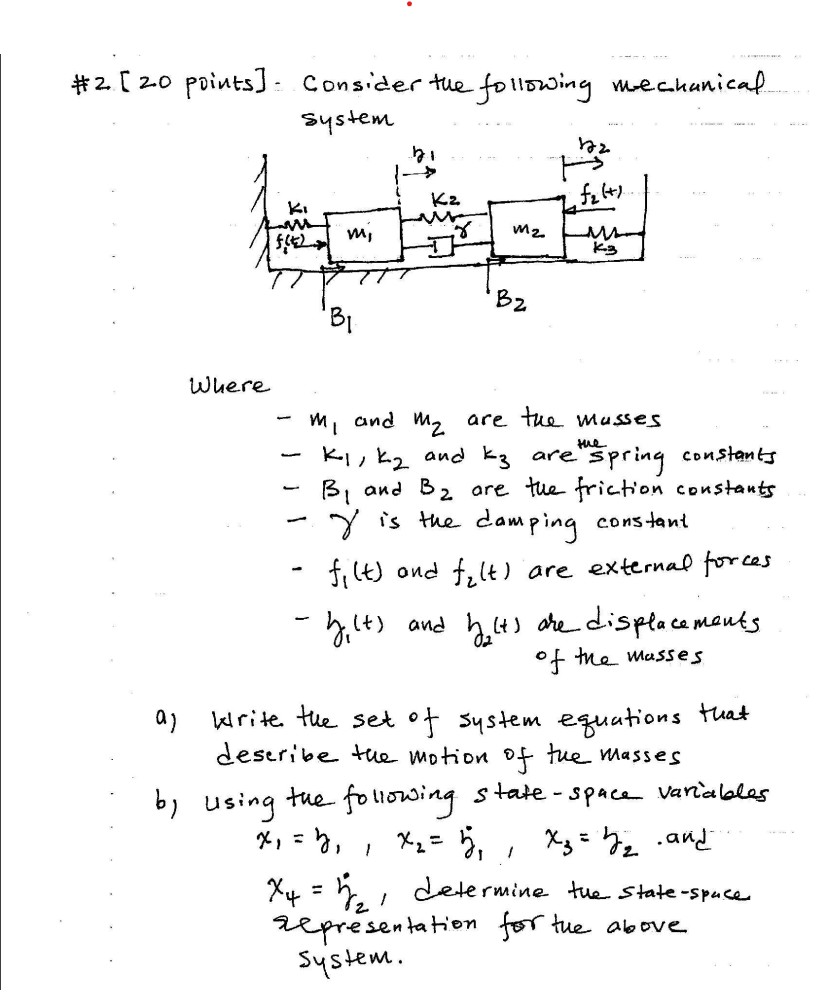 #2 [20 points] - Consider the following mechanical
system
y1 y2
K1 K2 f2(t)
f1(t) m1 γ m2 K3
B1 B2
Where
- m1 and m2 are the masses
- k1, k2 and k3 are the spring constants
- B1 and B2 are the friction constants
- γ is the damping constant
- f1(t) and f2(t) are external forces
- y1(t) and y2(t) are displacements
of the masses
a) Write the set of system equations that
describe the motion of the masses
b) using the following state-space variables
x1 = y1, x2 = ẏ1, x3 = y2 .and
x4 = ẏ2, determine the state-space
representation for the above
system.